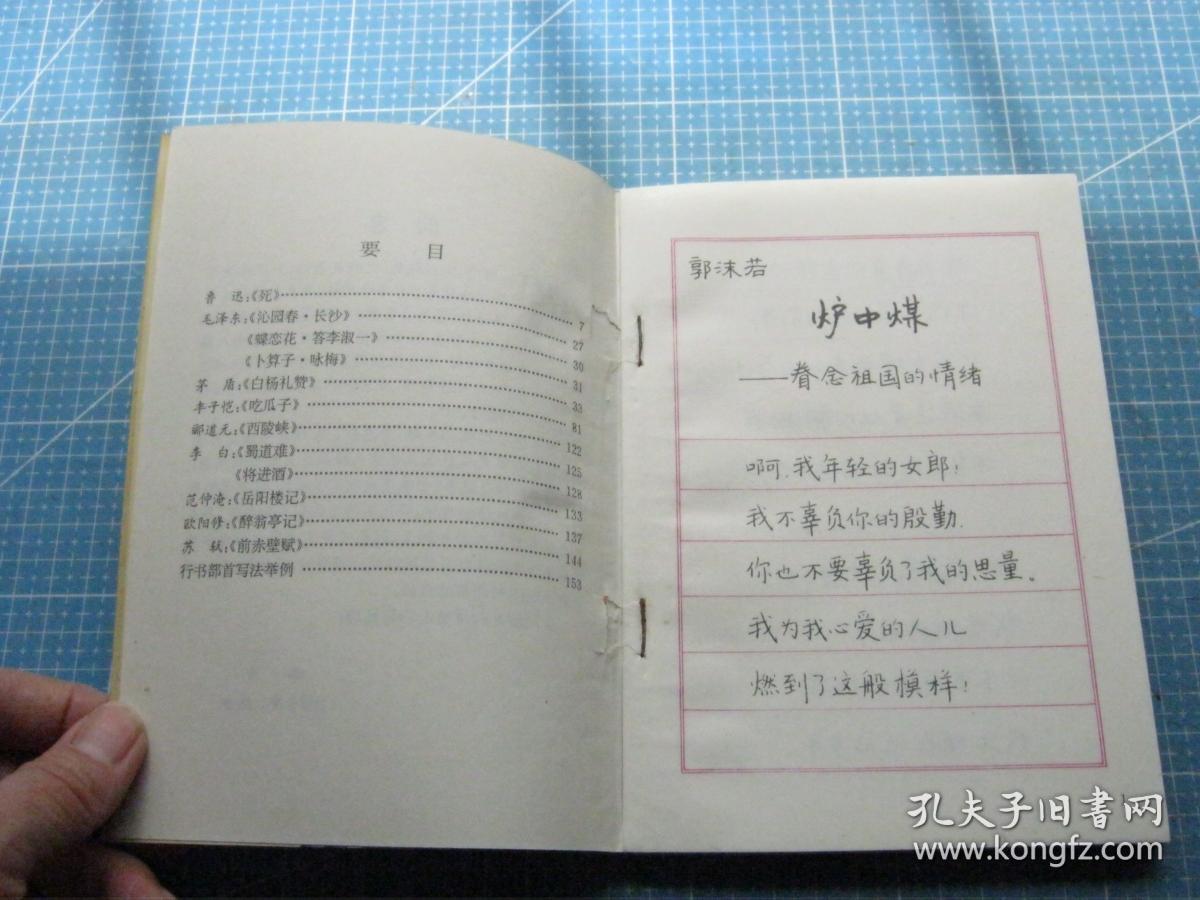 要 目
鲁 迅：《死》……7
毛泽东：《沁园春·长沙》……27
《蝶恋花·答李淑一》……30
《卜算子·咏梅》……31
茅 盾：《白杨礼赞》……33
丰子恺：《吃瓜子》……81
郦道元：《西陵峡》……122
李 白：《蜀道难》……125
《将进酒》……128
范仲淹：《岳阳楼记》……133
欧阳修：《醉翁亭记》……137
苏 轼：《前赤壁赋》……144
行书部首写法举例……153
郭沫若
炉中煤
——眷念祖国的情绪
啊，我年轻的女郎！
我不辜负你的殷勤，
你也不要辜负了我的思量。
我为我心爱的人儿
燃到了这般模样！
1
孔夫子旧书网
www.kongfz.com